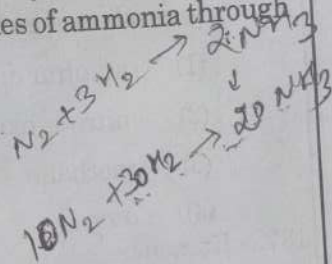 es of ammonia through
N2 + 3H2 → 2NH3
↓
10N2 + 30H2 → 20NH3